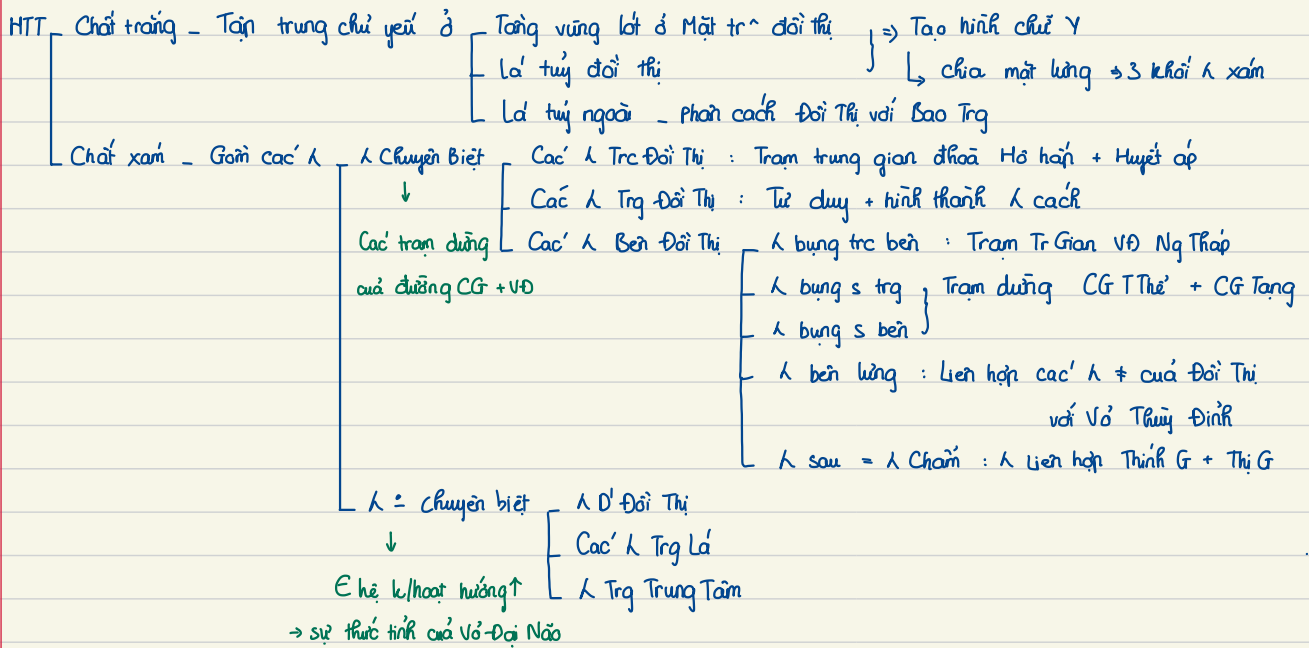 HTT Chất trắng - Tập trung chủ yếu ở Tầng vùng lót ở Mặt tr^ đồi thị => Tạo hình chữ Y
Lá tuỷ đồi thị ↳ chia mặt lưng → 3 khối λ xám
Lá tuỷ ngoài - Phân cách Đồi Thị với Bao Trg
Chất xám - Gồm các λ λ Chuyên Biệt Các λ Trc Đồi Thị : Trạm trung gian đhoà Hô hấp + Huyết áp
↓ Các λ Trg Đồi Thị : Tư duy + hình thành λ cách
Các trạm dừng Các λ Bên Đồi Thị λ bụng trc bên : Trạm Tr Gian VĐ Ng Tháp
của đường CG + VĐ λ bụng s trg } Trạm dừng CG T Thể + CG Tạng
λ bụng s bên
λ bên lưng : Liên hợp các λ ≠ của Đồi Thị
với Vỏ Thuỳ Đỉnh
λ sau = λ Chẩm : λ Liên hợp Thính G + Thị G
λ ∸ chuyên biệt λ D' Đồi Thị
↓ Các λ Trg Lá
∈ hệ k/hoạt hướng↑ λ Trg Trung Tâm
→ sự thức tỉnh của Vỏ-Đại Não